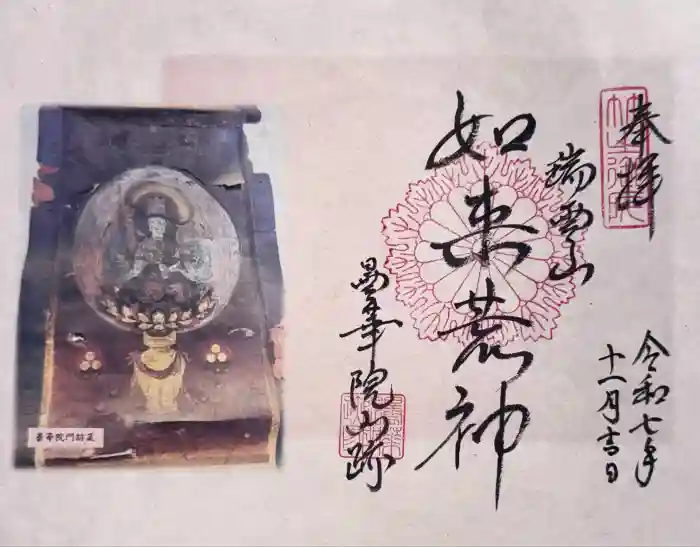 奉拝
瑞雲山
如来荒神
曇華院山跡
令和七年
十一月吉日
曇華院門跡蔵